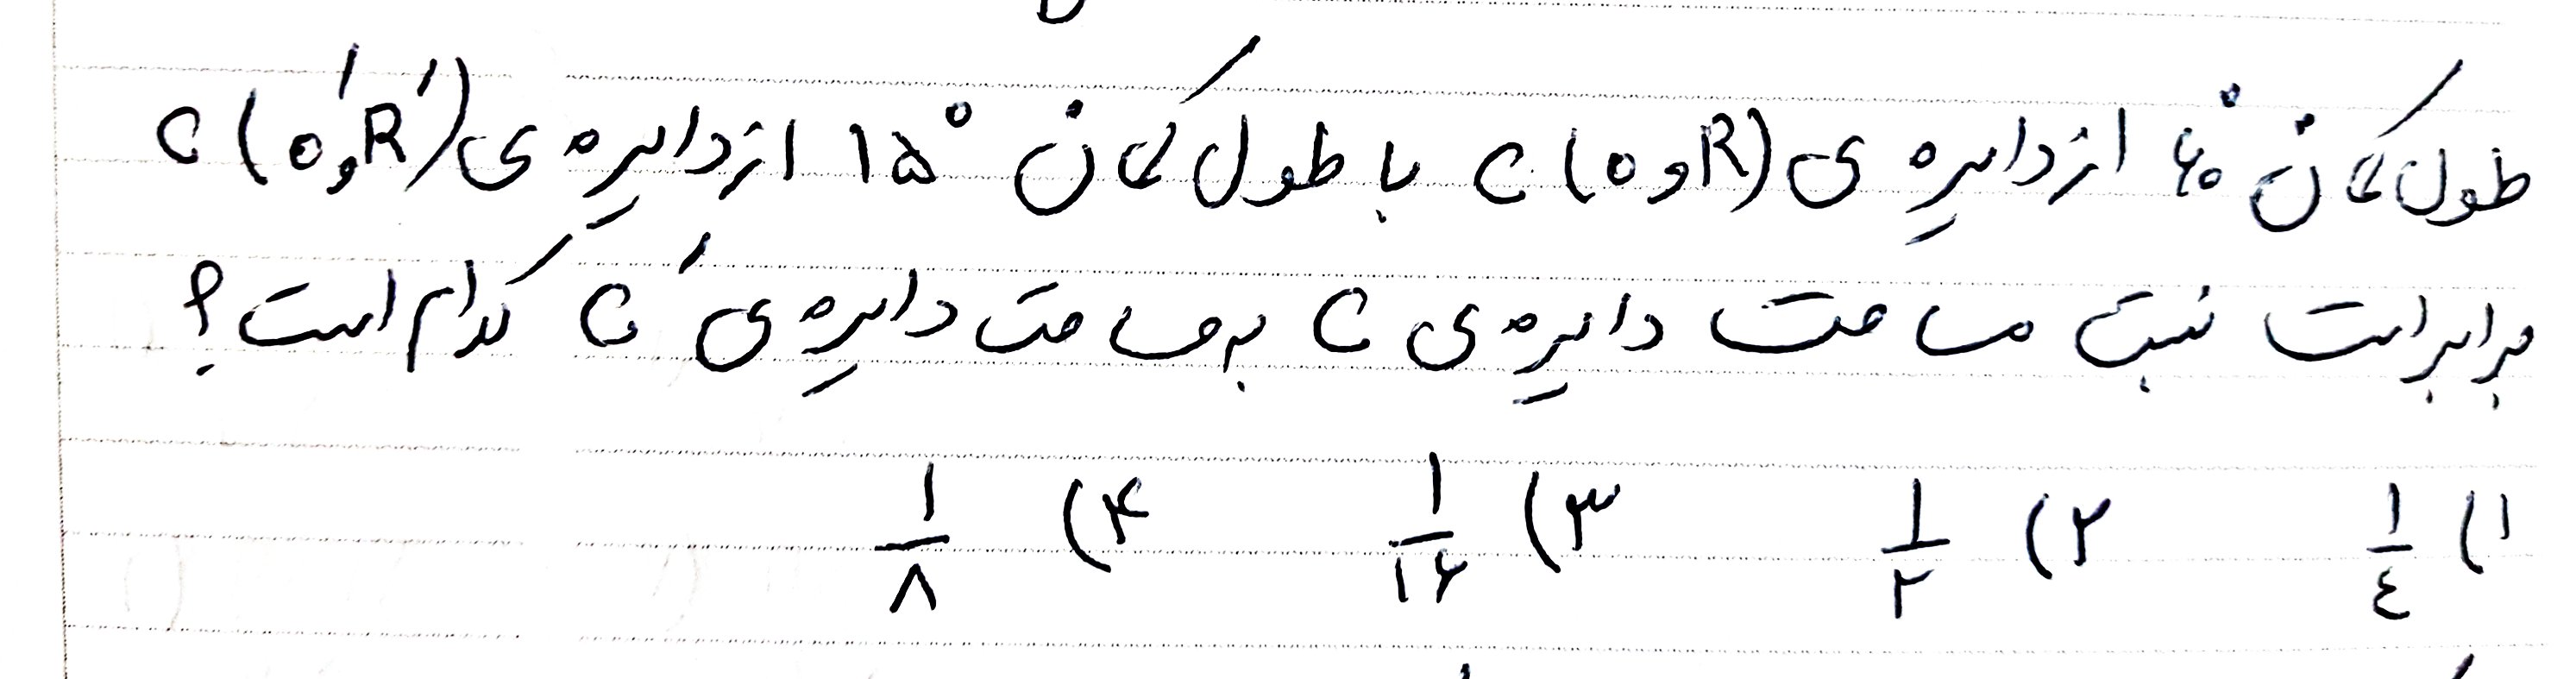 طول کمان ۶۰° از دایره ی C(O و R) با طول کمان ۱۵° از دایره ی C(O' و R')
برابر است نسبت مساحت دایره ی C به مساحت دایره ی C' کدام است؟
۱) ۱/۴ ۲) ۱/۲ ۳) ۱/۱۶ ۴) ۱/۸